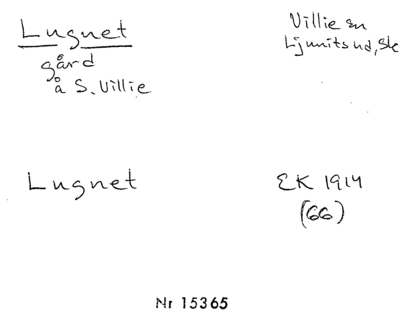 Lugnet
gård
å S. Villie
Villie sn
Ljunits hd, Sk
Lugnet
EK 1914
(66)
Nr 15365